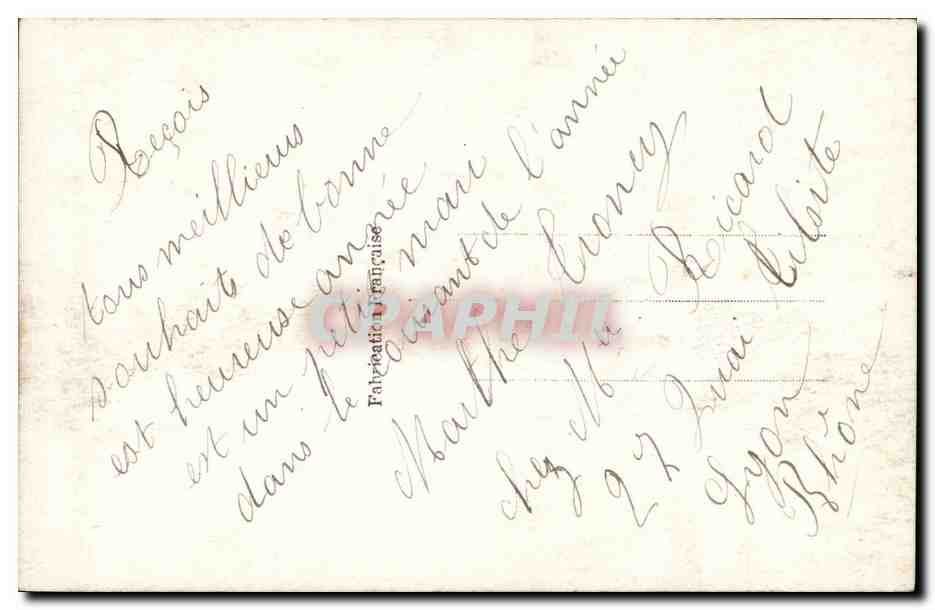 Reçois
tous meillieus
souhaits de bonne
est heureuse année
est un petit mari
dans le courant de l'année
Marthe
chez Mr Ricard
27 Quai Tilsite
Lyon
Rhône
Fabrication Française
CPAPHIL